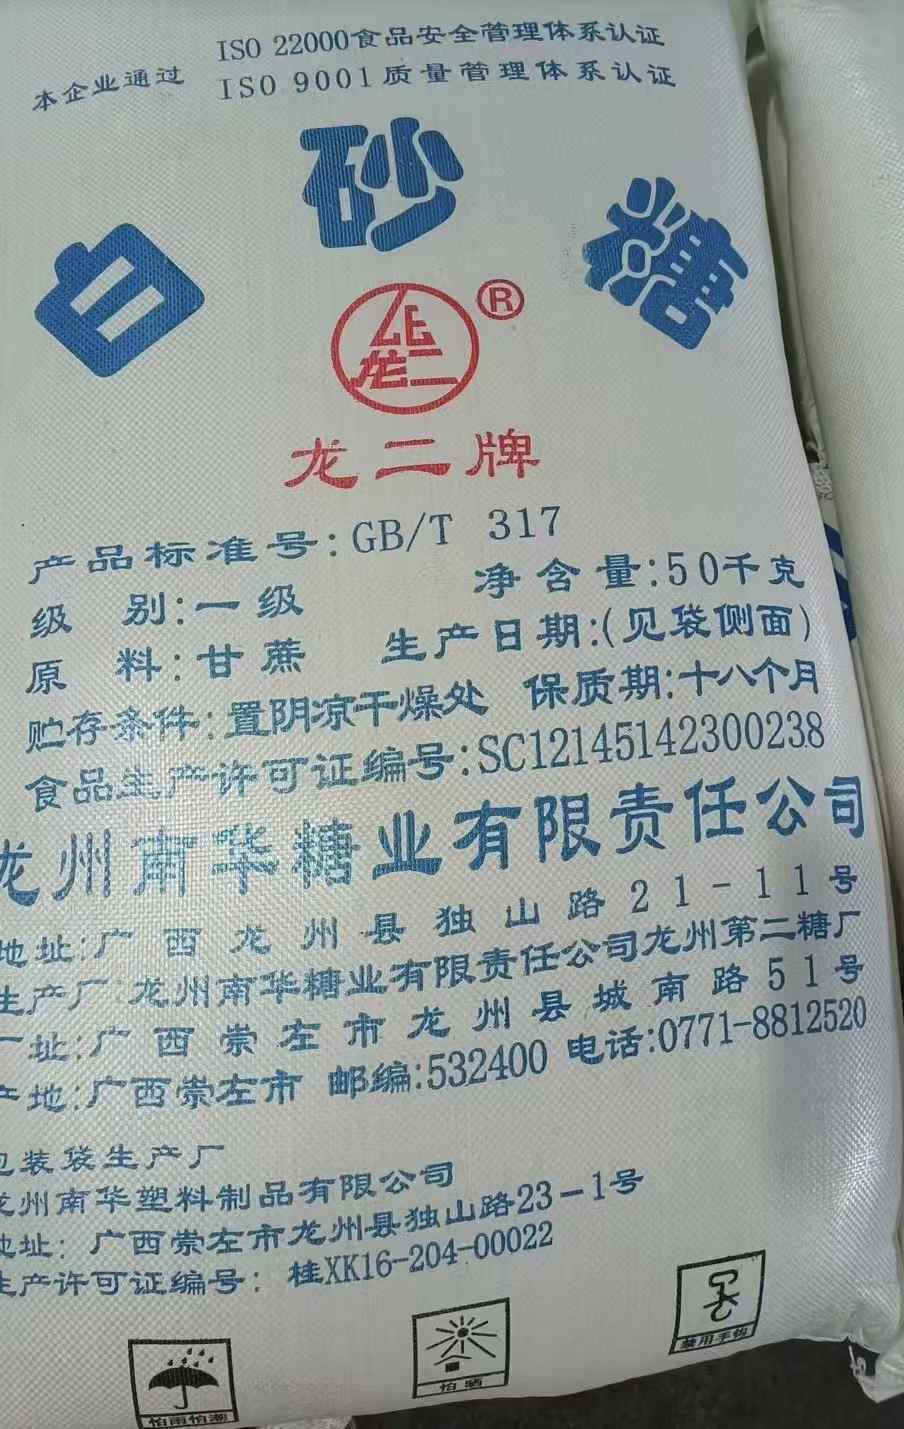 本企业通过
ISO 22000食品安全管理体系认证
ISO 9001质量管理体系认证
白砂糖
龙二
®
龙二牌
产品标准号:GB/T 317
级 别:一级 净含量:50千克
原 料:甘蔗 生产日期:(见袋侧面)
贮存条件:置阴凉干燥处 保质期:十八个月
食品生产许可证编号:SC12145142300238
龙州南华糖业有限责任公司
地址:广西龙州县独山路21-11号
生产厂:龙州南华糖业有限责任公司龙州第二糖厂
厂址:广西崇左市龙州县城南路51号
产地:广西崇左市 邮编:532400 电话:0771-8812520
包装袋生产厂
龙州南华塑料制品有限公司
地址: 广西崇左市龙州县独山路23-1号
生产许可证编号: 桂XK16-204-00022
怕雨怕潮
怕晒
禁用手钩